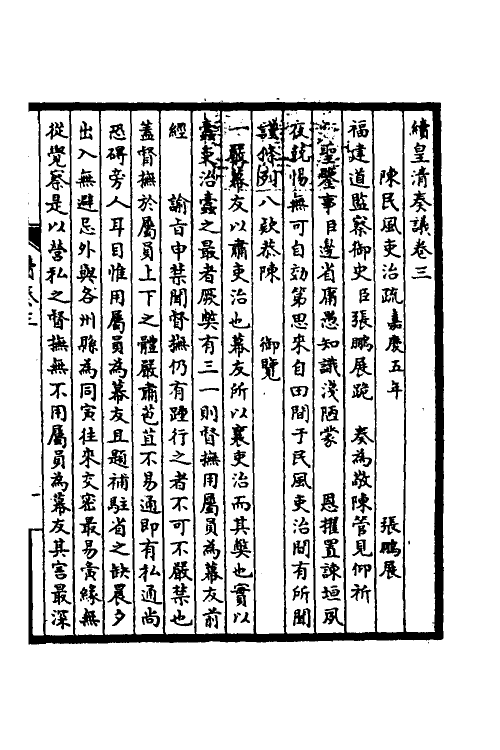 續皇清奏議卷三
陳民風吏治疏嘉慶五年 張鵬展
福建道監察御史臣張鵬展跪 奏為敬陳管見仰祈
聖鑒事臣邊省庸愚知識淺陋蒙 恩擢置諫垣夙
夜兢惕無可自効第思來自田間于民風吏治間有所聞
謹條列八欵恭陳 御覽
一嚴幕友以肅吏治也幕友所以襄吏治而其獘也實以
蠹吏治蠹之最者厥獘有三一則督撫用屬員為幕友前
經 諭旨申禁聞督撫仍有踵行之者不可不嚴禁也
蓋督撫於屬員上下之體嚴肅苞苴不易通即有私通尚
恐碍旁人耳目惟用屬員為幕友且題補駐省之缺晨夕
出入無避忌外與各州縣為同寅往來交密最易夤緣無
從覺察是以營私之督撫無不用屬員為幕友其害最深
卷三
一